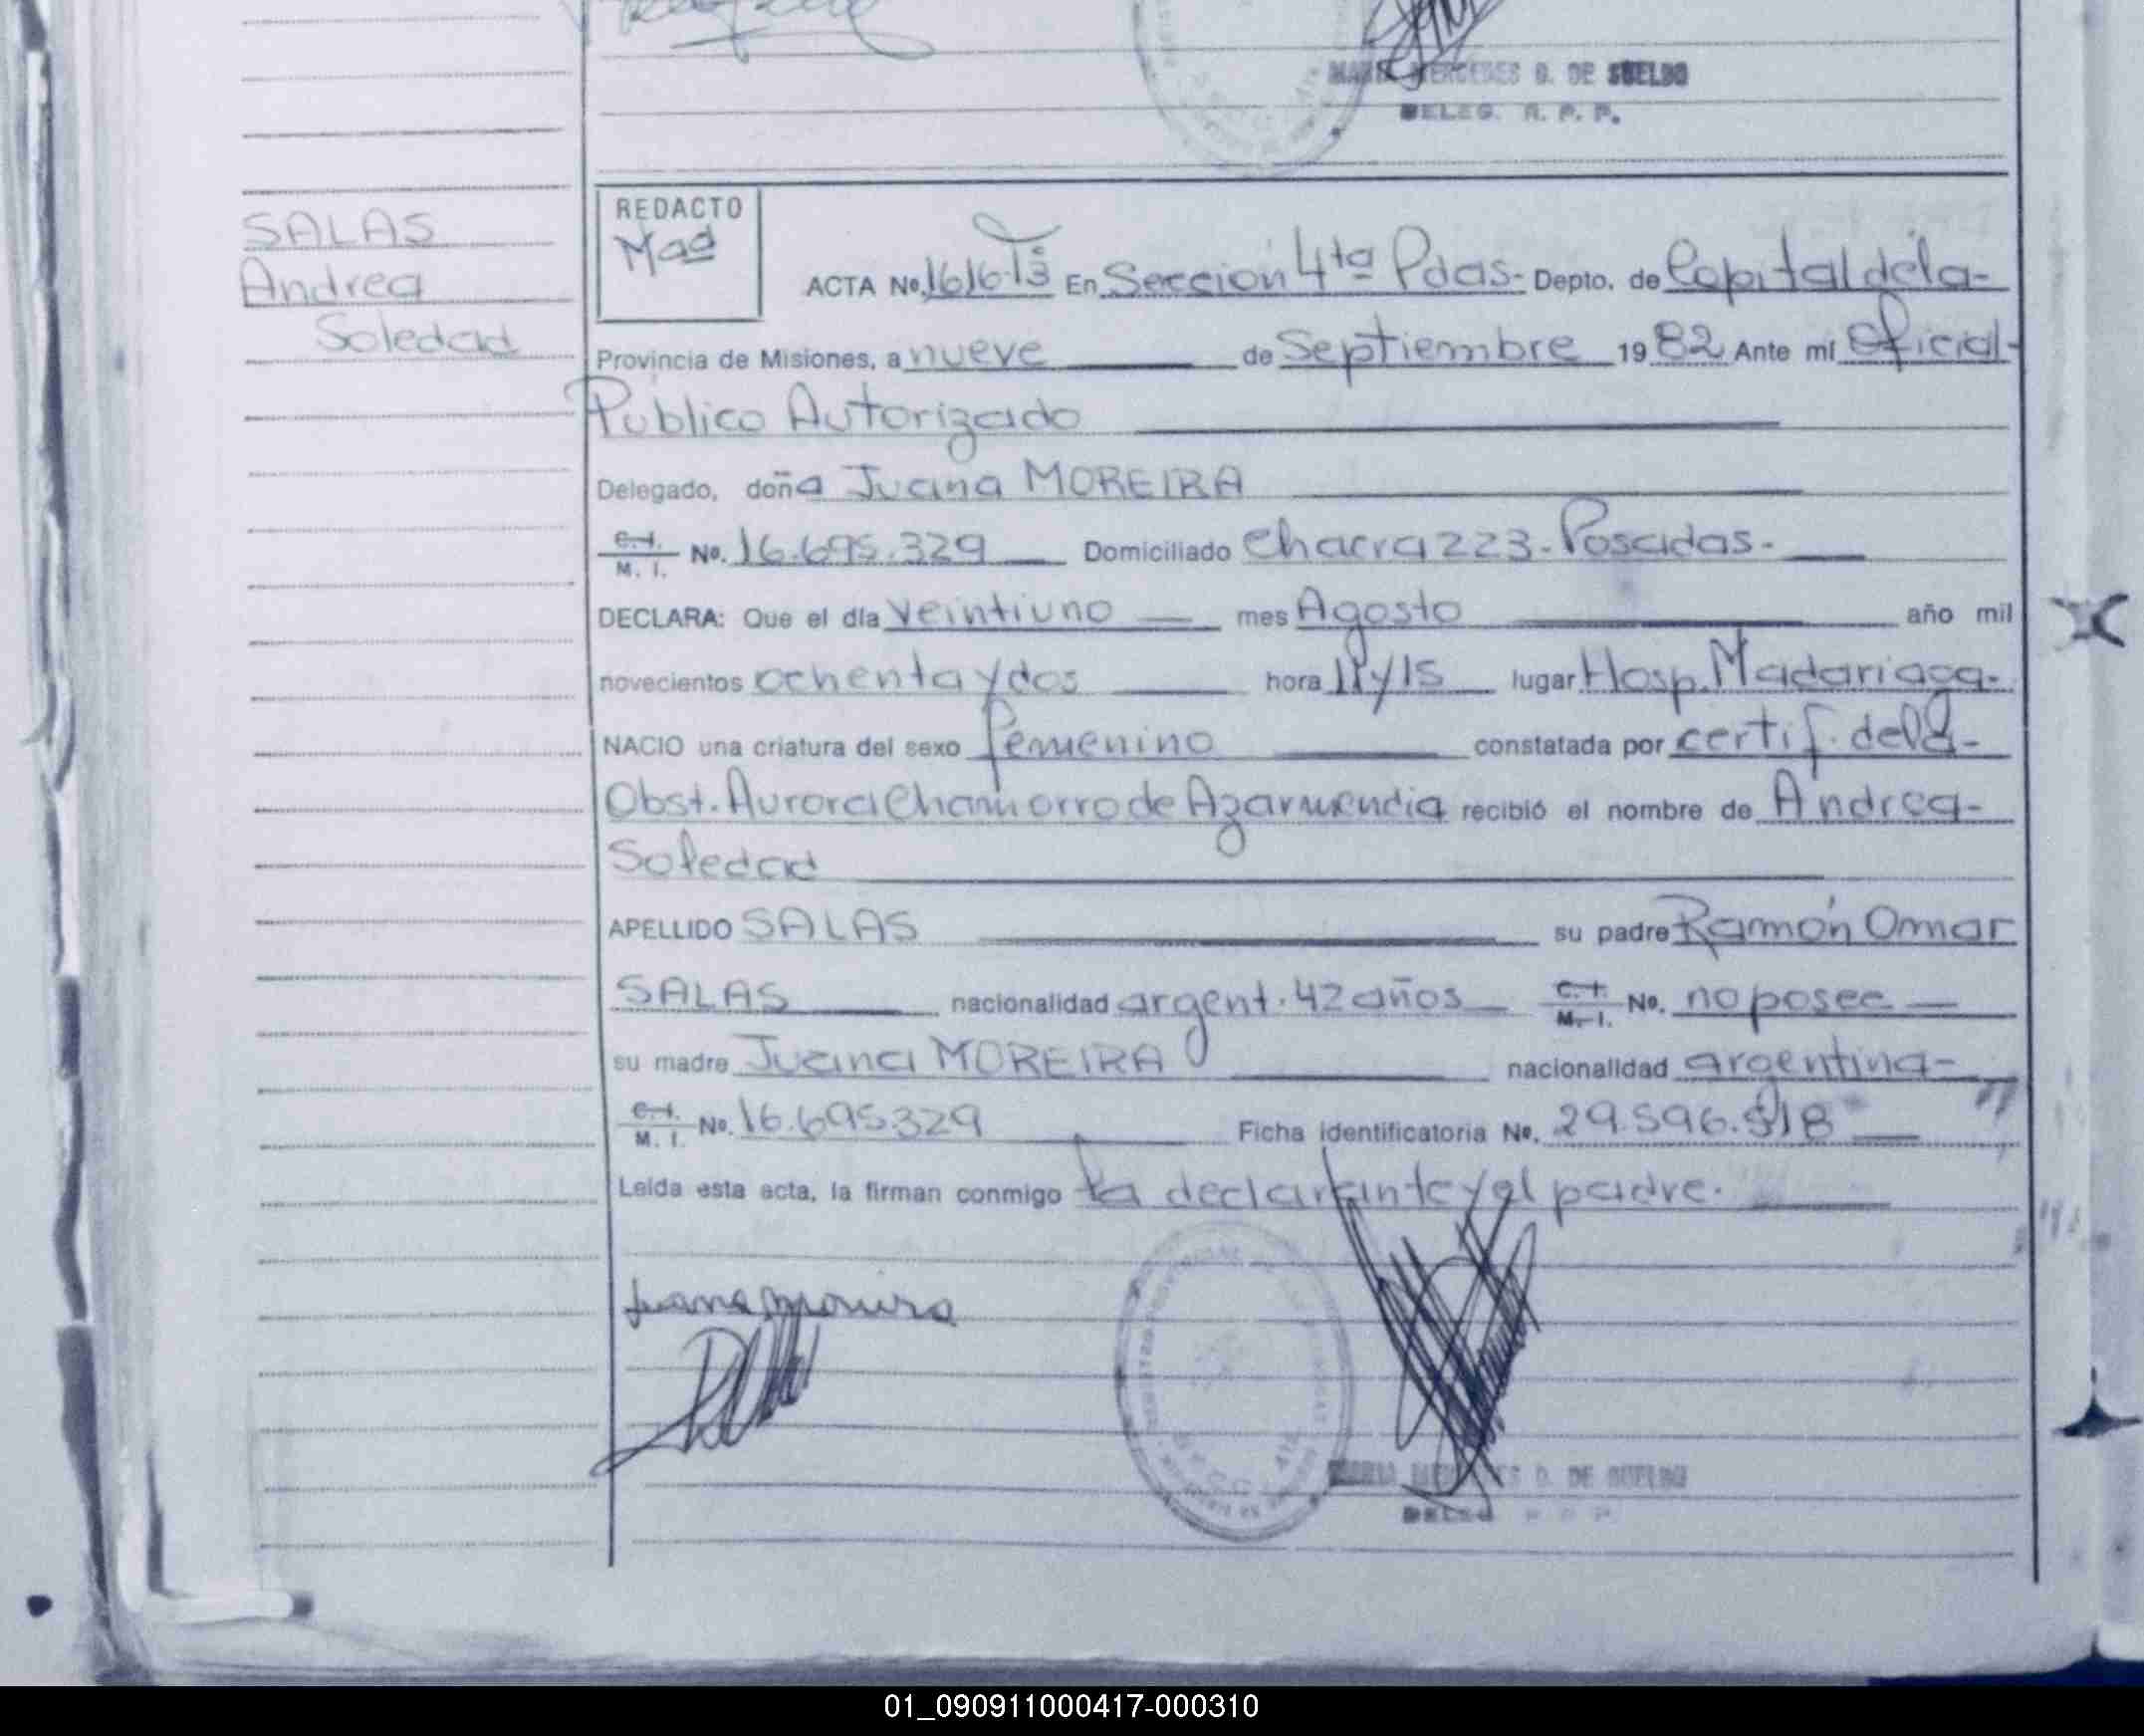 MARIA MERCEDES D. DE SUELDO
DELEG. R. P. P.
SALAS
Andrea
Soledad
REDACTO
Mad
ACTA No. 1616 Tº3 En Seccion 4ta Pdas- Depto. de Capital de la-
Provincia de Misiones, a nueve de Septiembre 1982 Ante mí Oficial-
Publico Autorizado
Delegado, doña Juana MOREIRA
C. I. M. I. No. 16.695.329 Domiciliado Chacra 223- Posadas-
DECLARA: Que el día veintiuno mes Agosto año mil
novecientos ochenta y dos hora 11 y 15 lugar Hosp. Madariaga-
NACIO una criatura del sexo femenino constatada por certif. de la-
Obst. Aurora Chamorro de Azarmendia recibió el nombre de Andrea-
Soledad
APELLIDO SALAS su padre Ramón Omar
SALAS nacionalidad argent. 42 años C. I. M. I. No. no posee
su madre Juana MOREIRA nacionalidad argentina-
C. I. M. I. No. 16.695.329 Ficha identificatoria No. 29.596.518
Leída esta acta, la firman conmigo la declarante y el padre.
juana moreira
MARIA MERCEDES D. DE SUELDO
DELEG. R. P. P.
01_090911000417-000310